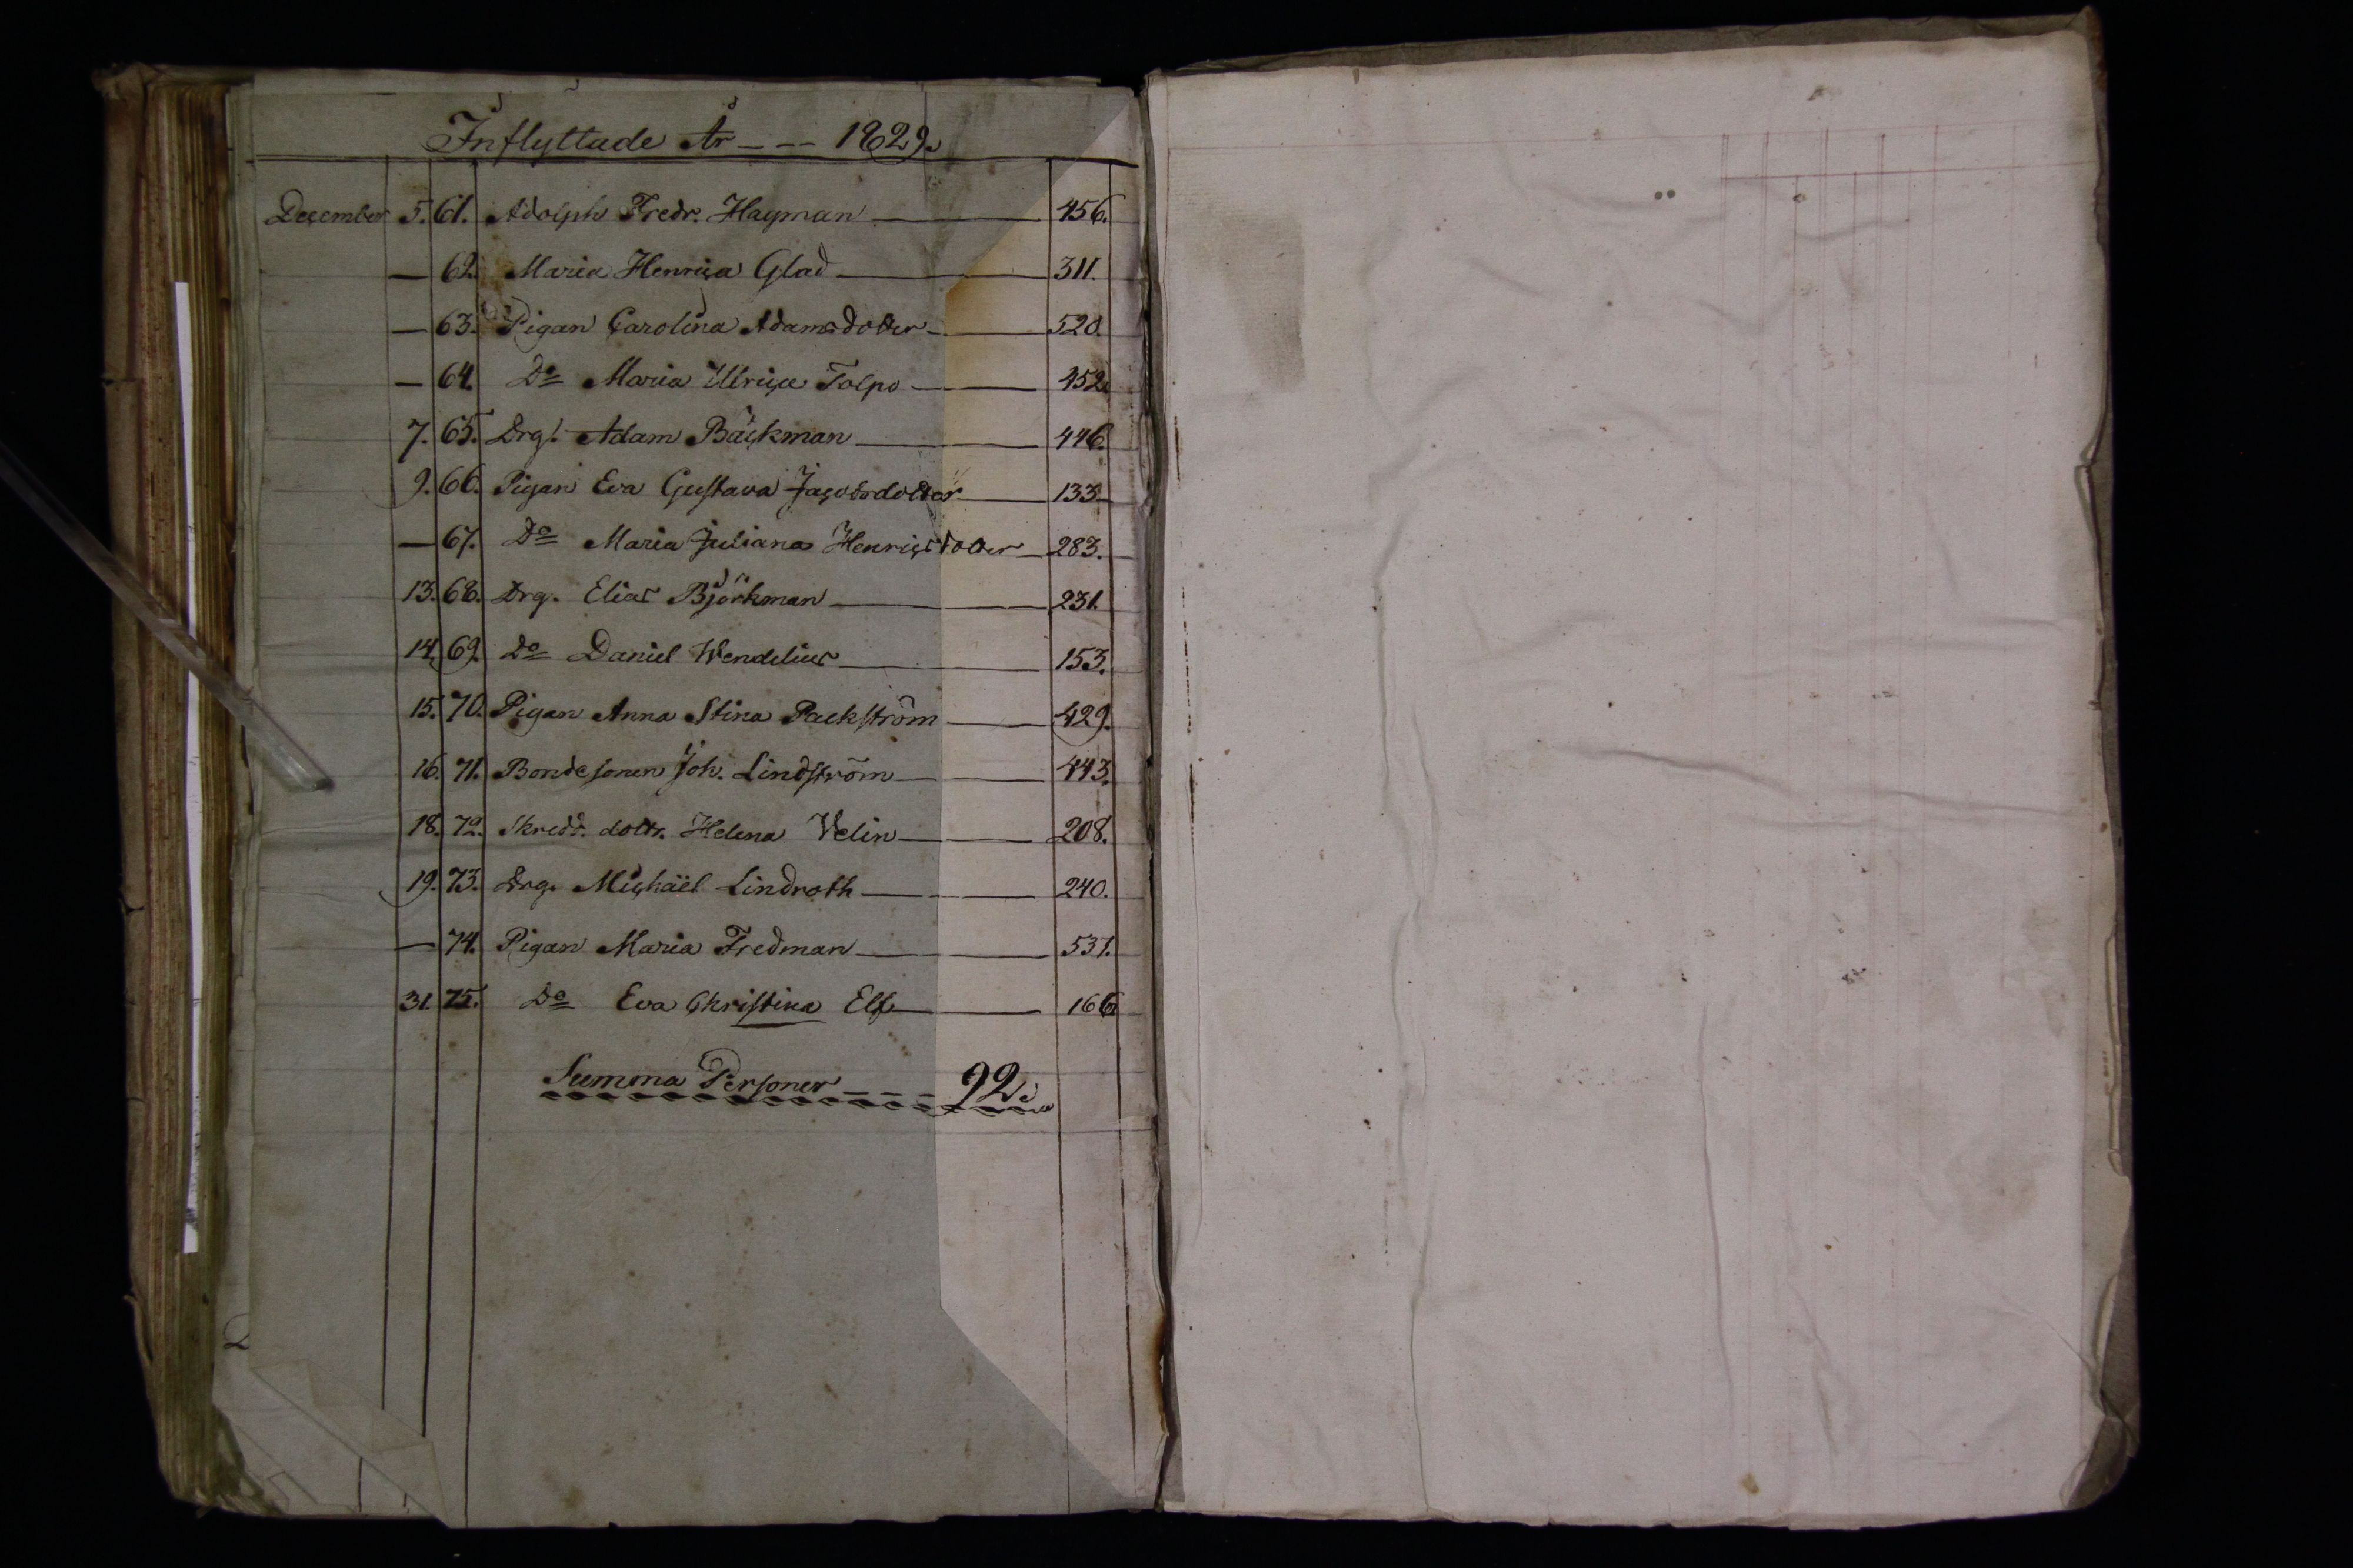 Inflyttade År --- 1829.
December 5. 61. Adolph Fredr. Hayman 456.
— 62. Maria Henrica Glad 311.
— 63. Pigan Carolina Adamsdotter 520.
— 64. Do Maria Ulrica Tolpo 452.
7. 65. Drg. Adam Bäckman 446.
9. 66. Pigan Eva Gustava Jacobsdotter 133.
— 67. Do Maria Juliana Henricsdotter 283.
13. 68. Drg. Elias Björkman 231.
14. 69. Do Daniel Wendelius 153.
15. 70. Pigan Anna Stina Packström 429.
16. 71. Bondesonen Joh. Lindström 443.
18. 72. Skredd. dottr. Helena Velin 208.
19. 73. Drg. Michäel Lindroth 240.
— 74. Pigan Maria Fredman 537.
31. 75. Do Eva Christina Elf 166
Summa Personer --- 92.